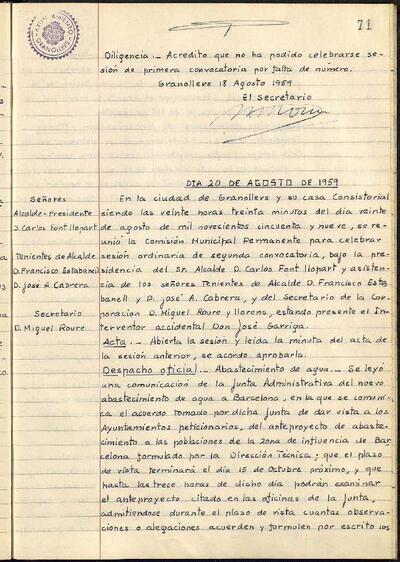 71
AYUNTAMIENTO
GRANOLLERS
Diligencia._ Acredito que no ha podido celebrarse se-
sión de primera convocatoria por falta de número.
Granollers 18 Agosto 1959
El Secretario
DIA 20 DE AGOSTO DE 1959
Señores
Alcalde-Presidente
D. Carlos Font Llopart
Tenientes de Alcalde
D. Francisco Estabanell
D. José A. Cabrera
Secretario
D. Miguel Roure
En la ciudad de Granollers y su casa Consistorial
siendo las veinte horas treinta minutos del día veinte
de agosto de mil novecientos cincuenta y nueve, se re-
unió la Comisión Municipal Permanente para celebrar
sesión ordinaria de segunda convocatoria, bajo la pre-
sidencia del Sr. Alcalde D. Carlos Font Llopart y asisten-
cia de los señores Tenientes de Alcalde D. Francisco Esta-
banell y D. José A. Cabrera, y del Secretario de la Cor-
poracion D. Miguel Roure y Llorens, estando presente el In-
terventor accidental Don José Garriga.
Acta._ Abierta la sesión y leida la minuta del acta de
la sesión anterior, se acordo aprobarla.
Despacho oficial._ Abastecimiento de agua._ Se leyó
una comunicación de la Junta Administrativa del nuevo
abastecimiento de agua a Barcelona, en la que se comuni-
ca el acuerdo tomado por dicha Junta de dar vista a los
Ayuntamientos peticionarios, del anteproyecto de abaste-
cimiento a las poblaciones de la zona de influencia de Bar-
celona formulado por la Dirección Técnica; que el plazo
de vista terminará el día 15 de Octubre próximo, y que
hasta las trece horas de dicho día podrán examinar
el anteproyecto citado en las oficinas de la Junta,
admitiendose durante el plazo de vista cuantas observa-
ciones o alegaciones acuerden y formulen por escrito los